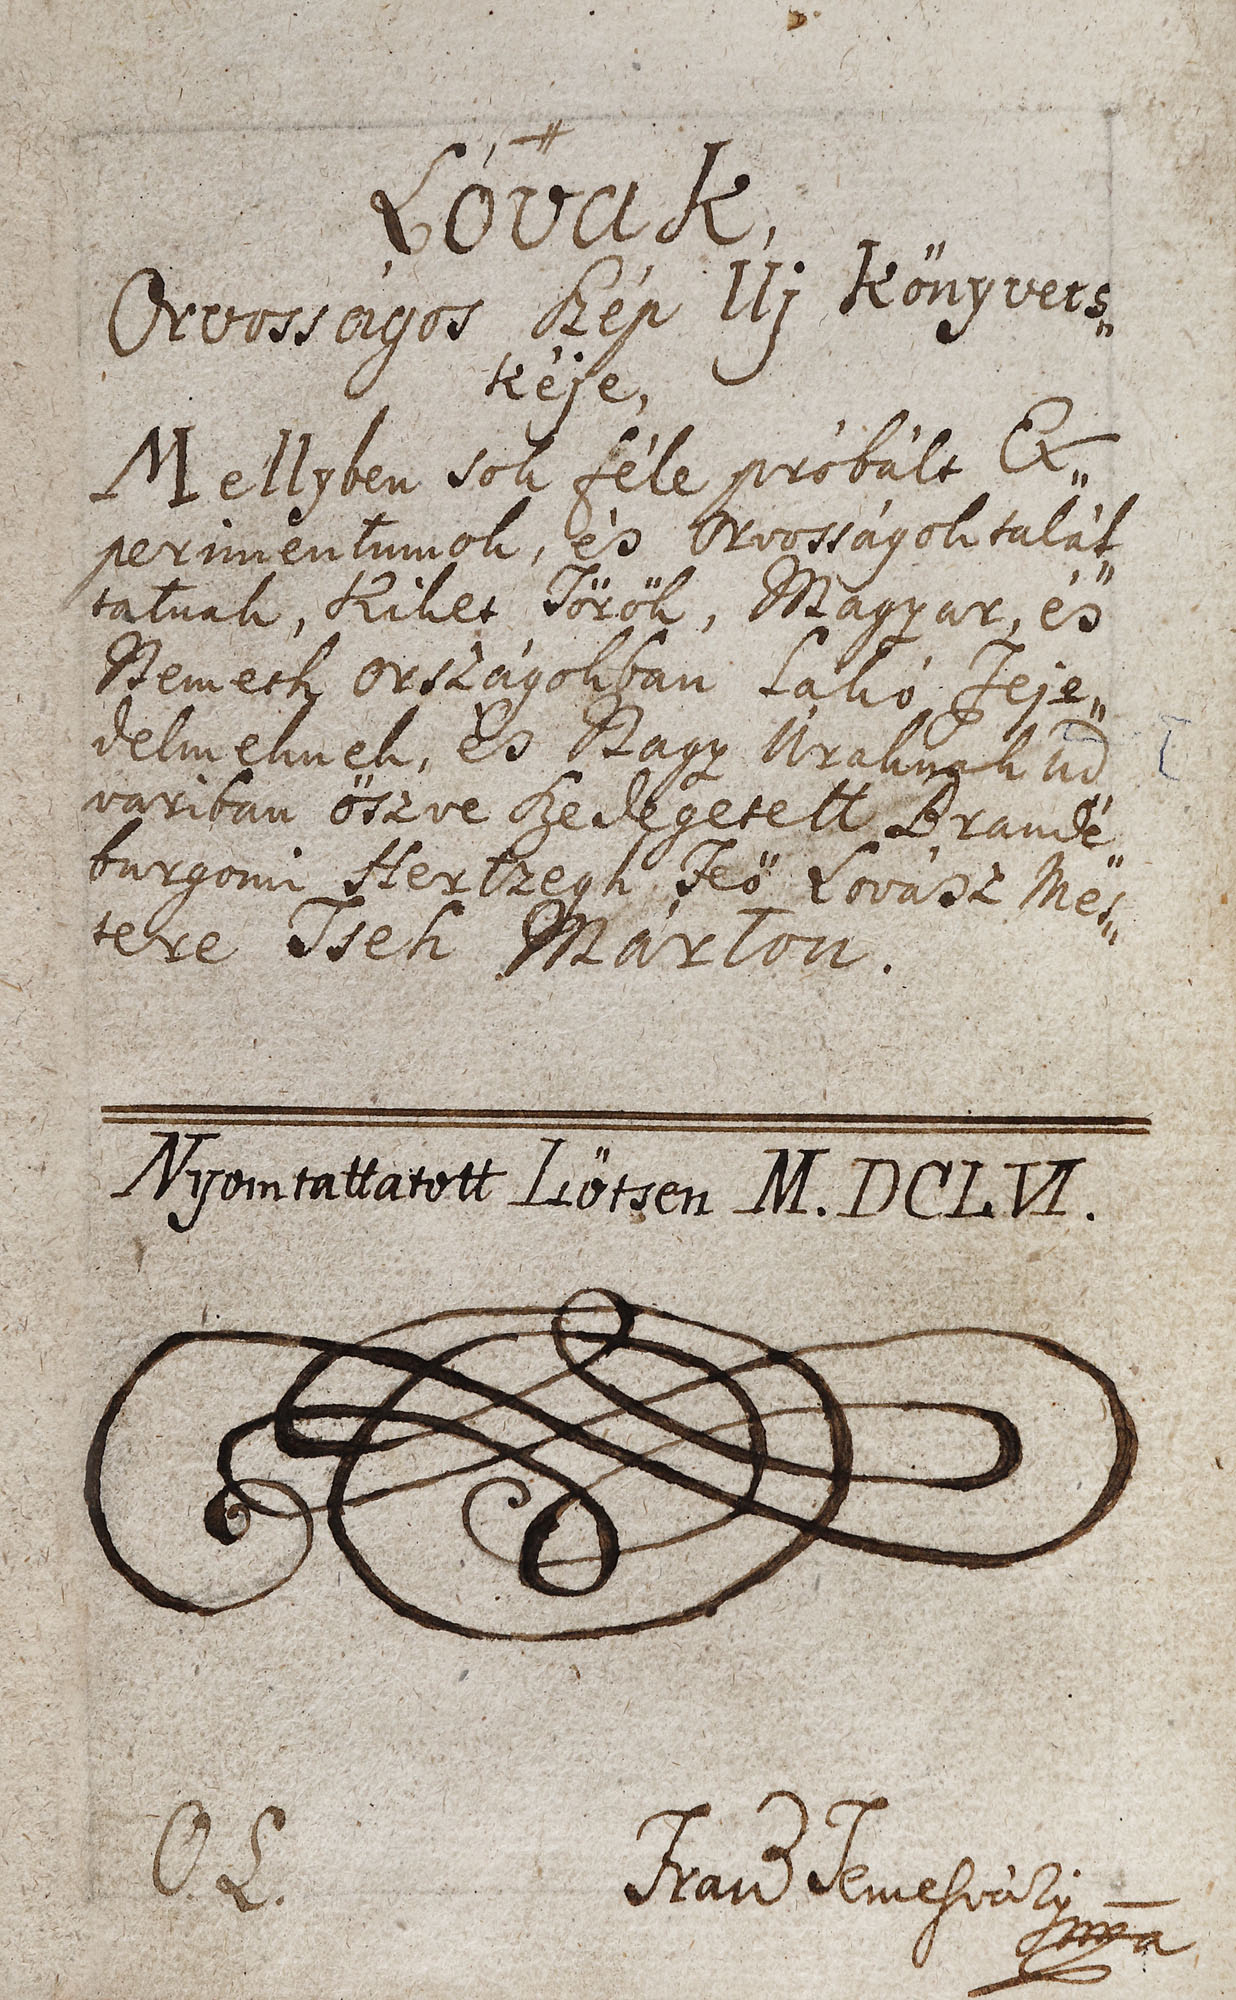 Lóvak,
Orvosságos Szép Uj Könyvets„
kéje,
Mellyben sok féle próbált Ex„
perimentumok, és orvosságok talál„
tatnak, Kiket Török, Magyar, és
Nemeth országokban Lakó Feje„
delmeknek, és Nagy Uraknak ud
variban öszve Szedegetett Brandē
burgomi Hertzegh Feö Lovász Mes„
tere Tseh Márton.
Nyomtattatott Lötsen M.DCLVI.
O. L.
Franz Temesváry